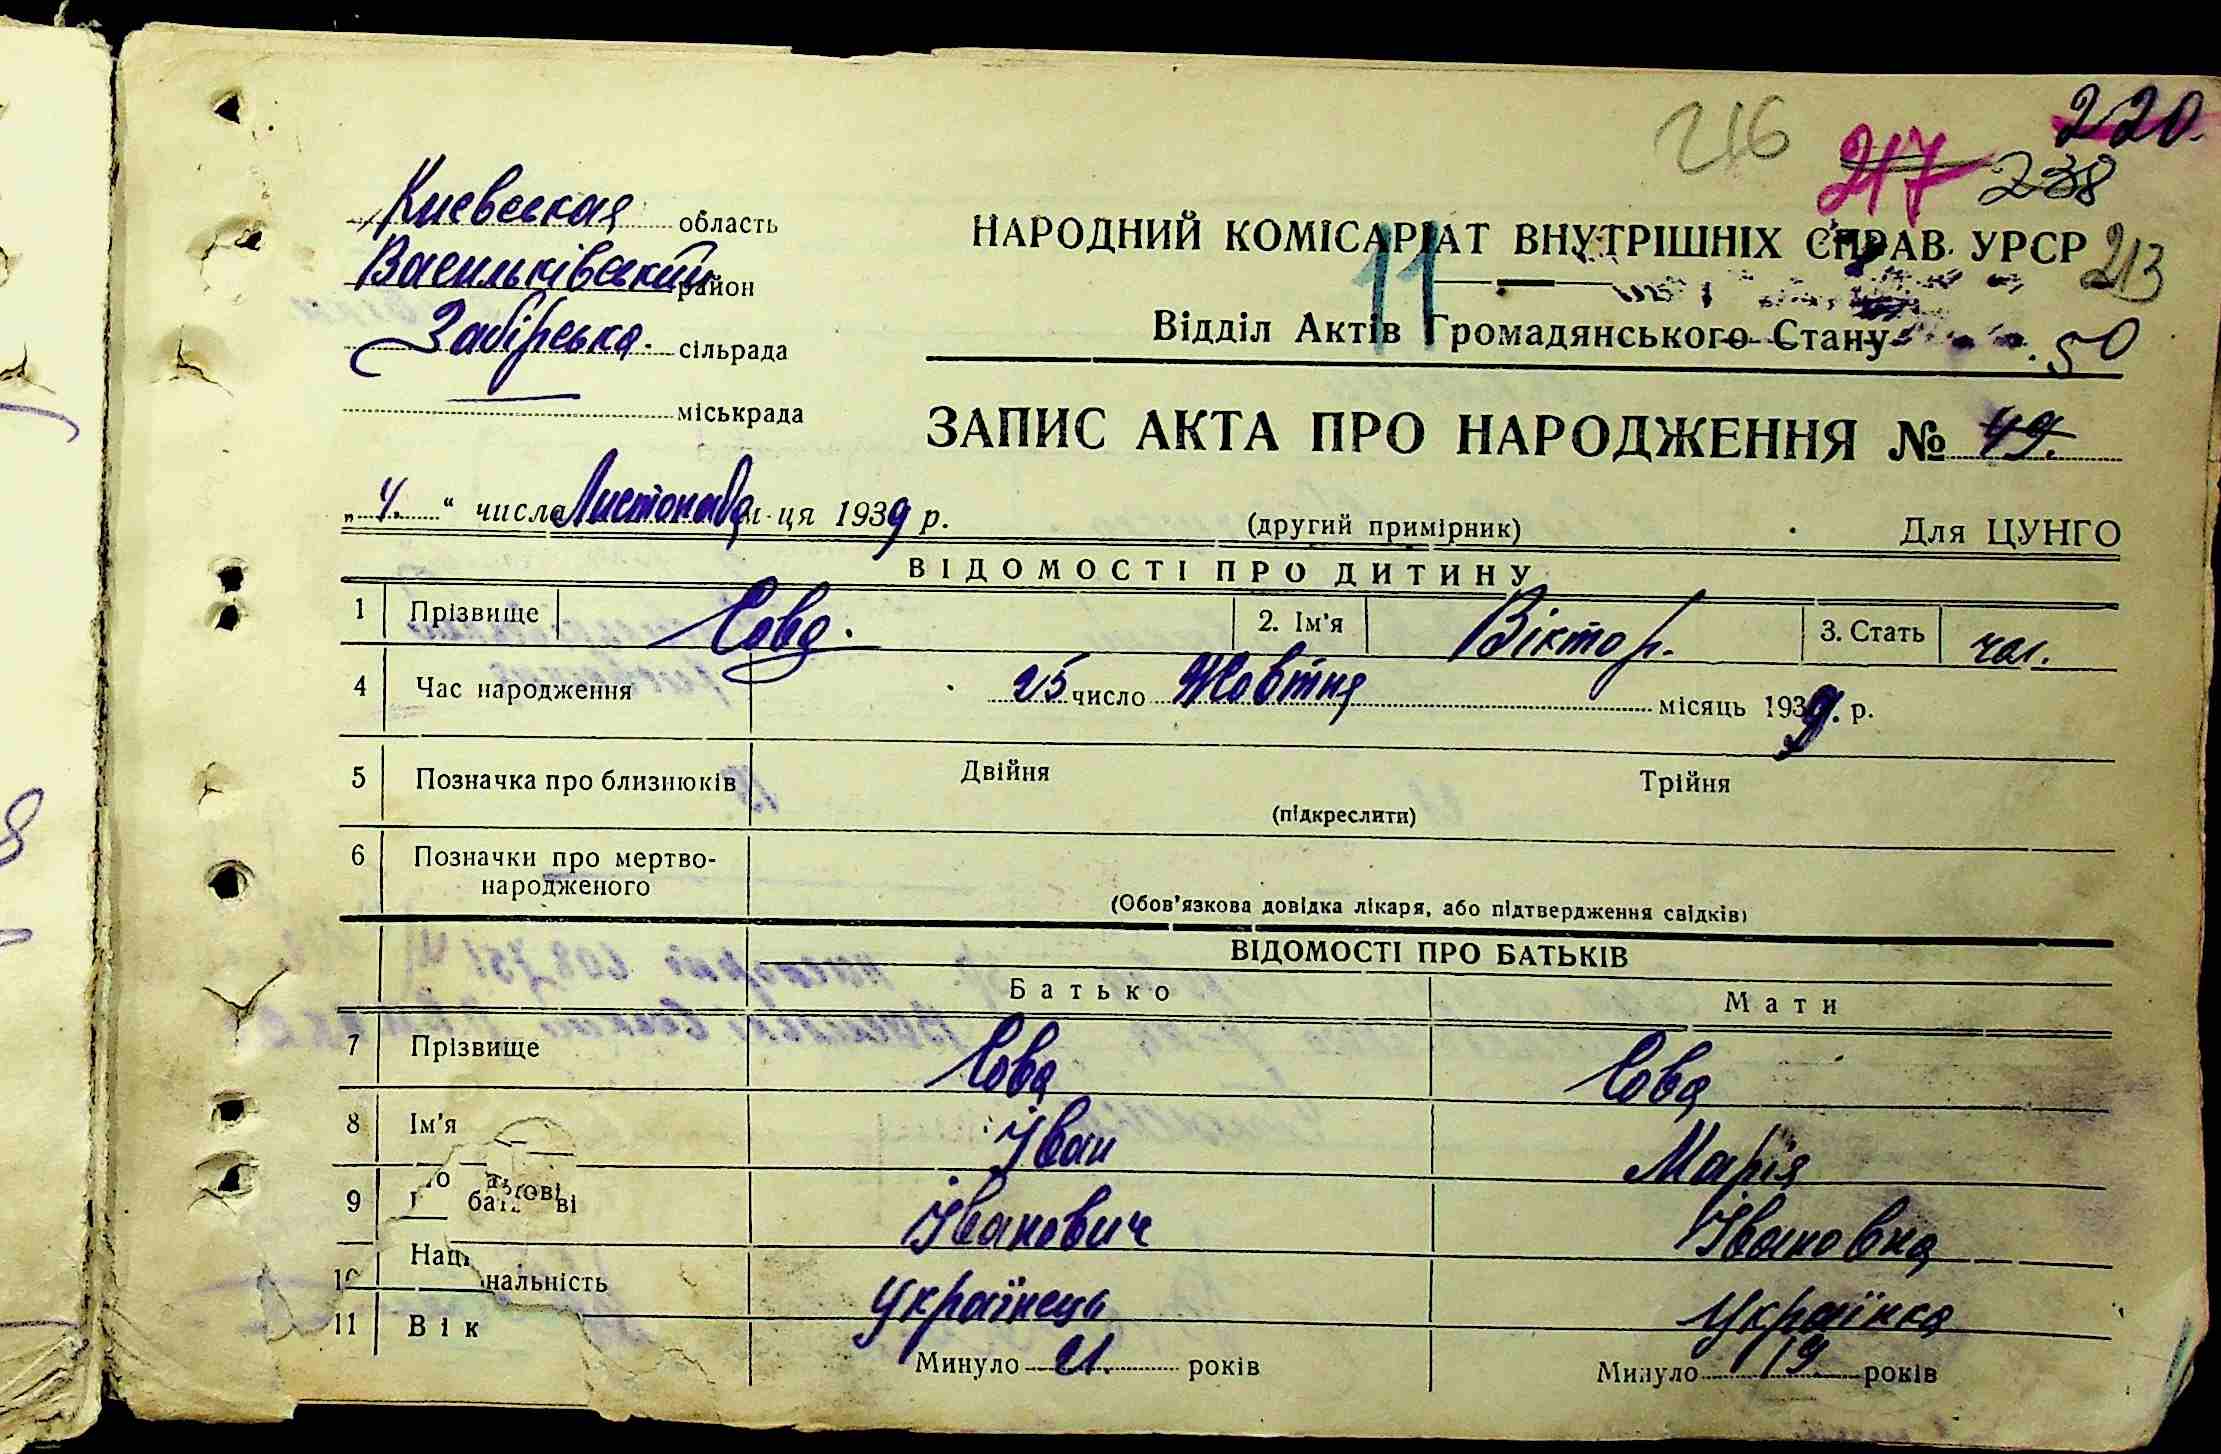 216 217 238 220.
Киевская область
Васильківський район
Забірська. сільрада
міськрада
НАРОДНИЙ КОМІСАРІАТ ВНУТРІШНІХ СПРАВ УРСР 213
11
Відділ Актів Громадянського Стану 50
ЗАПИС АКТА ПРО НАРОДЖЕННЯ № 49.
„4.“ числа Листопада м-ця 1939 р. (другий примірник) Для ЦУНГО
ВІДОМОСТІ ПРО ДИТИНУ
1 Прізвище Сова. 2. Ім'я Віктор. 3. Стать чол.
4 Час народження 25 число Жовтня місяць 1939. р.
5 Позначка про близнюків Двійня Трійня
(підкреслити)
6 Позначки про мертво-
народженого
(Обов'язкова довідка лікаря, або підтвердження свідків)
ВІДОМОСТІ ПРО БАТЬКІВ
Батько Мати
7 Прізвище Сова Сова
8 Ім'я Іван Марія
9 Іванович Івановна
10 Українець Українка
11 Вік Минуло 21. років Минуло 19 років